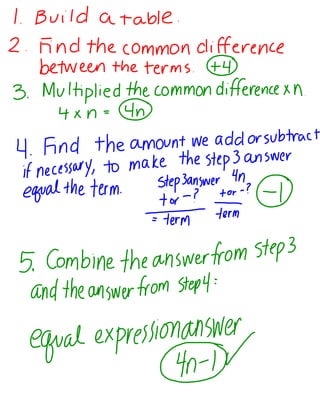 1. Build a table.
2. Find the common difference
between the terms. +4
3. Multiplied the common difference x n
4 x n = 4n
4. Find the amount we add or subtract
if necessary, to make the step 3 answer
equal the term.
Step 3 answer 4n
+ or - ? + or - ? -1
= term term
5. Combine the answer from step 3
and the answer from step 4:
equal expression answer
4n-1